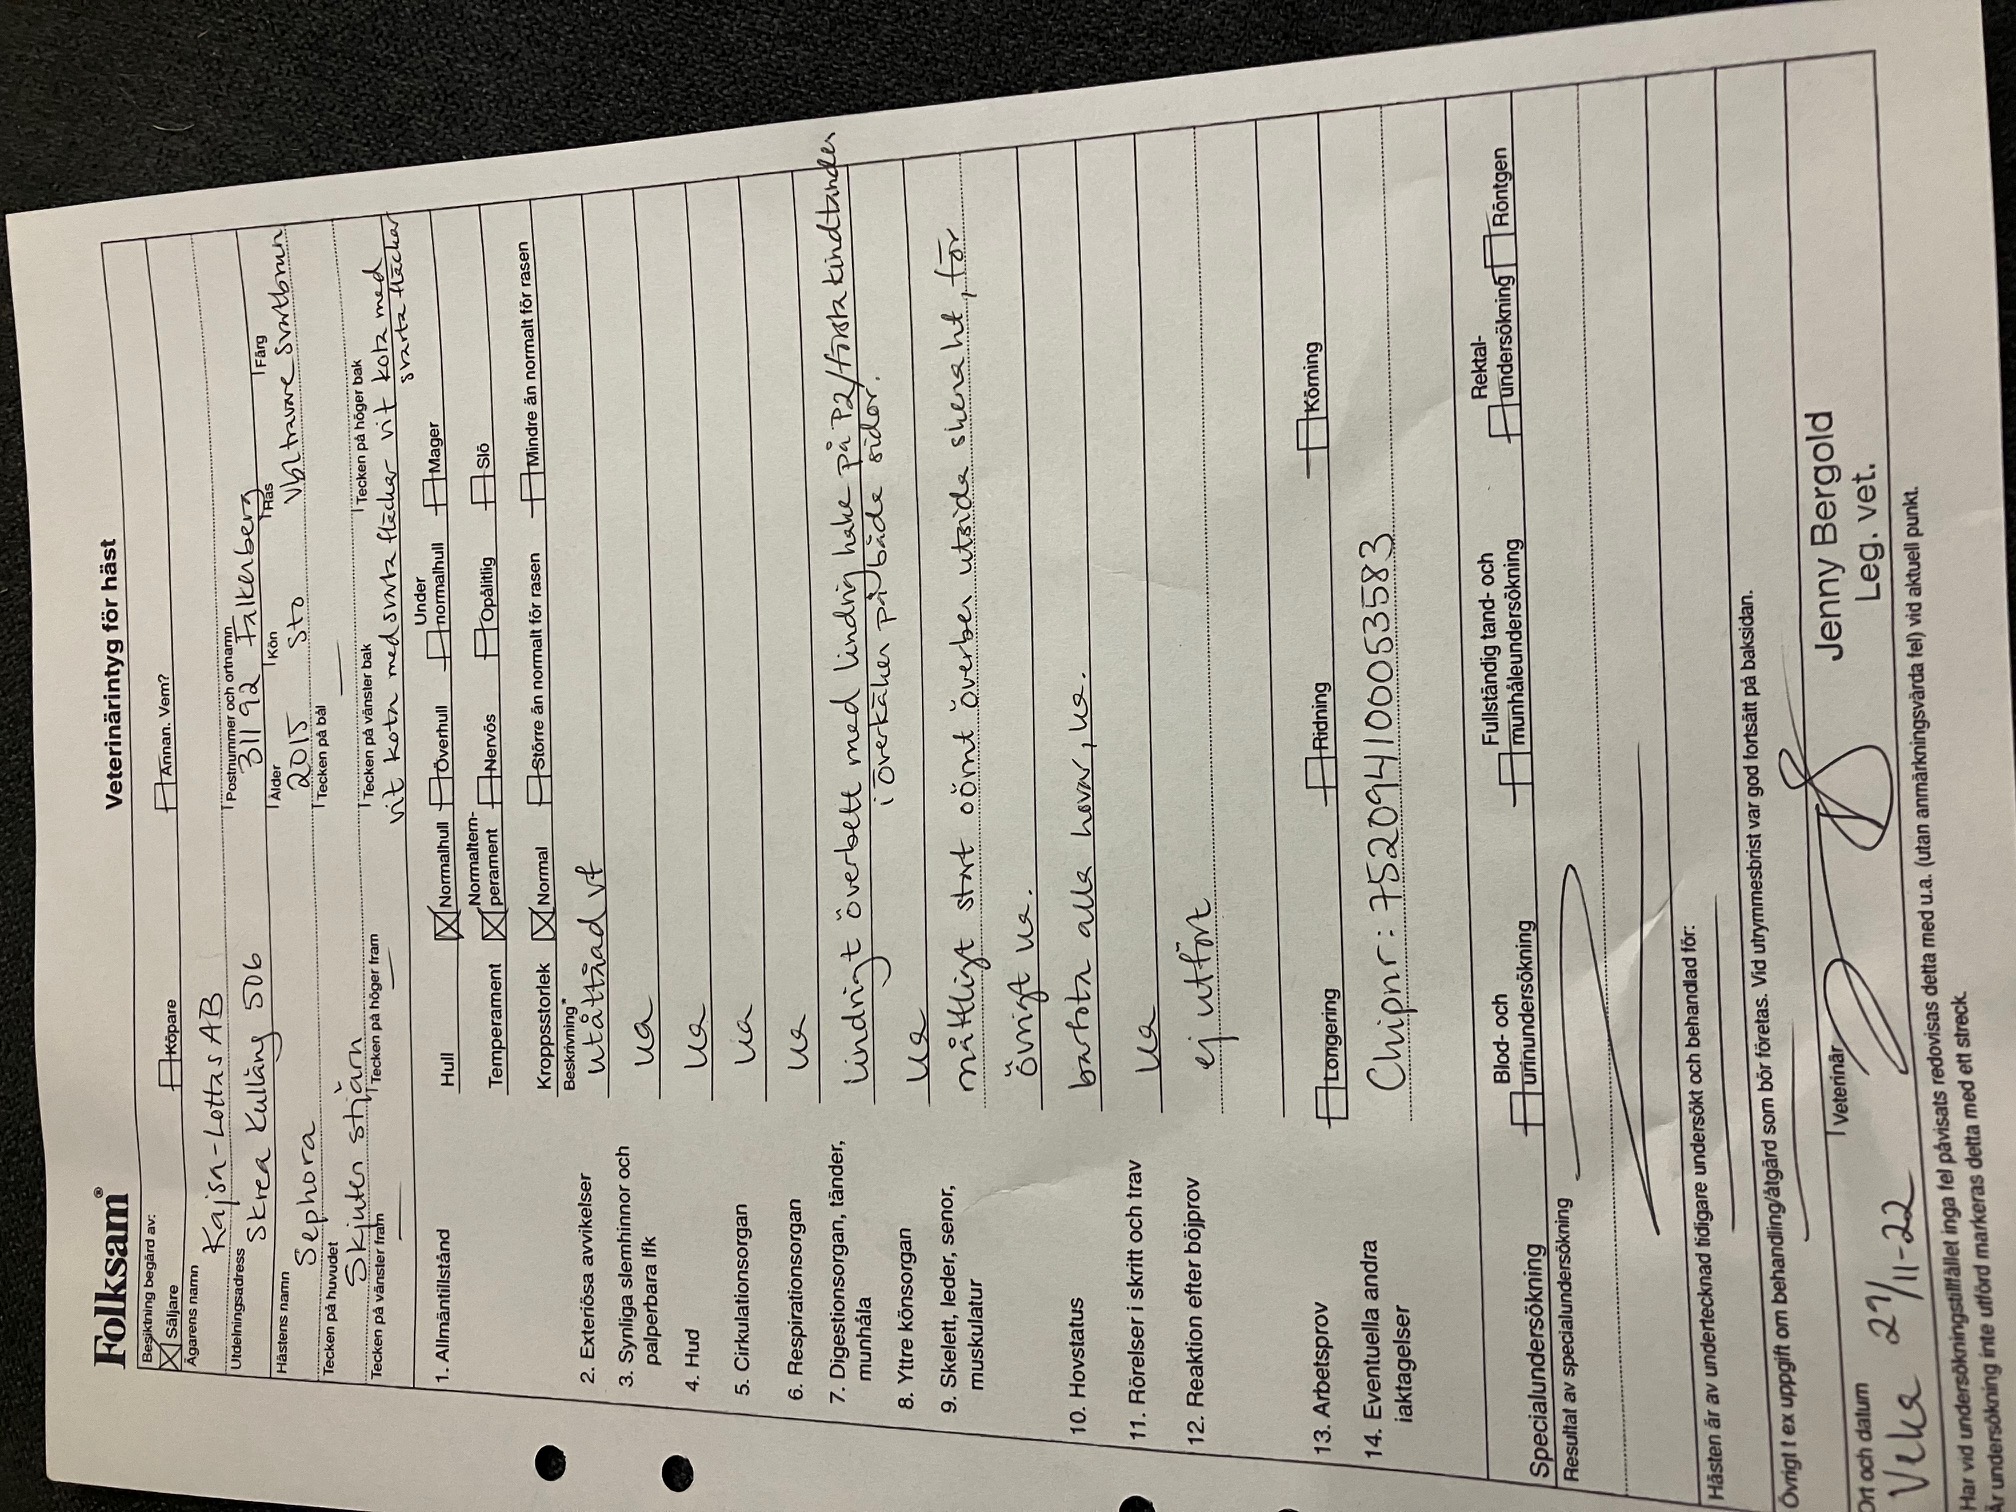 Folksam®
Veterinärintyg för häst
Besiktning begärd av:
Säljare Köpare Annan. Vem?
Ägarens namn
Kajsa-Lottas AB
Utdelningsadress Postnummer och ortnamn
Skrea Kulläng 506 311 92 Falkenberg
Hästens namn Ålder Kön Ras Färg
Sephora 2015 Sto Vbl travare Svartbrun
Tecken på huvudet Tecken på bål
Skjuten stjärn —
Tecken på vänster fram Tecken på höger fram Tecken på vänster bak Tecken på höger bak
— — vit kota med svarta fläckar vit kota med
svarta fläckar
1. Allmäntillstånd Hull Normalhull Överhull Under normalhull Mager
Temperament Normaltem-perament Nervös Opålitlig Slö
Kroppsstorlek Normal Större än normalt för rasen Mindre än normalt för rasen
Beskrivning*
2. Exteriösa avvikelser utåttåad vf
3. Synliga slemhinnor och ua
palperbara lfk
4. Hud ua
5. Cirkulationsorgan ua
6. Respirationsorgan ua
7. Digestionsorgan, tänder, lindrigt överbett med lindrig hake på P2/första kindtanden
munhåla i överkäken på båda sidor.
8. Yttre könsorgan ua
9. Skelett, leder, senor, måttligt stort oömt överben utsida skena ht, för
muskulatur övrigt ua.
10. Hovstatus barfota alla hovar, ua.
11. Rörelser i skritt och trav ua
12. Reaktion efter böjprov ej utfört
13. Arbetsprov Longering Ridning Körning
14. Eventuella andra Chipnr: 752094100053583
iaktagelser
Specialundersökning Blod- och urinundersökning Fullständig tand- och munhåleundersökning Rektal-undersökning Röntgen
Resultat av specialundersökning
Hästen är av undertecknad tidigare undersökt och behandlad för:
Övrigt t ex uppgift om behandling/åtgärd som bör företas. Vid utrymmesbrist var god fortsätt på baksidan.
Ort och datum Veterinär
Veka 29/11-22 Jenny Bergold
Leg. vet.
Har vid undersökningstillfället inga fel påvisats redovisas detta med u.a. (utan anmärkningsvärda fel) vid aktuell punkt.
Är undersökning inte utförd markeras detta med ett streck.